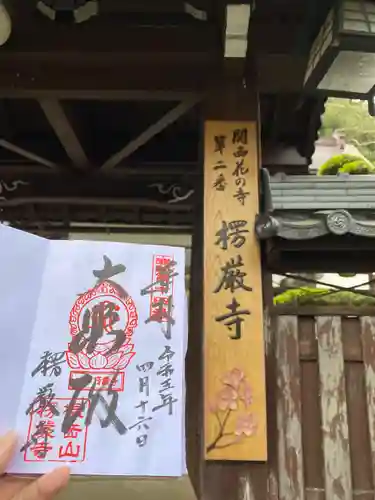 関西花の寺
第二番
楞厳寺
奉拝
大悲殿
令和三年
四月十六日
楞厳寺